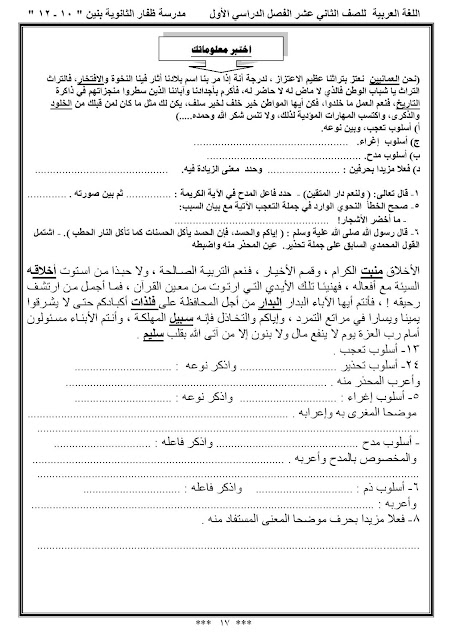 اللغة العربية للصف الثاني عشر الفصل الدراسي الأول مدرسة ظفار الثانوية بنين " ١٠ - ١٢ "
اختبر معلوماتك
(نحن العمانيين نعتز بتراثنا عظيم الاعتزاز ، لدرجة أنه إذا مر بنا اسم بلادنا أثار فينا النخوة والافتخار، فالتراث
التراث يا شباب الوطن فالذي لا ماض له لا حاضر له، فأكرم بأجدادنا وآبائنا الذين سطروا منجزاتهم في ذاكرة
التاريخ، فنعم العمل ما خلدوا، فكن أيها المواطن خير خلف لخير سلف، يكن لك مثل ما كان لمن قبلك من الخلود
والذكرى، واكتسب المهارات المؤدية لذلك، ولا تنس شكر الله وحمده.....)
أ) أسلوب تعجب، وبين نوعه.
ج) أسلوب إغراء. ..............................
ب) أسلوب مدح. ..............................
د) فعلا مزيدا بحرفين : .................. وحدد معنى الزيادة فيه. ..............................
١- قال تعالى: ( ولنعم دار المتقين) - حدد فاعل المدح في الآية الكريمة : ............ ثم بين صورته . ............
٥- صحح الخطأ النحوي الوارد في جملة التعجب الآتية مع بيان السبب:
- ما أخضر الأشجار! ..............................
٦- قال رسول الله صلى الله عليه وسلم : ( إياكم والحسد، فإن الحسد يأكل الحسنات كما تأكل النار الحطب ) . - اشتمل
القول المحمدي السابق على جملة تحذير. عين المحذر منه واضبطه
الأخلاق منبت الكرام ، وقمم الأخيار ، فنعم التربية الصالحة ، ولا حبذا من استوت أخلاقه
السيئة مع أفعاله ، فهنيئا تلك الأيدي التي ارتوت من معين القرآن ، فما أجمل من ارتشف
رحيقه ! ، فأنتم أيها الآباء البدار البدار من أجل المحافظة على فلذات أكبادكم حتى لا يشرقوا
يمينا ويسارا في مراتع التمرد ، وإياكم والتخاذل فإنه سبيل المهلكة ، وأنتم الأبناء مسئولون
أمام رب العزة يوم لا ينفع مال ولا بنون إلا من أتى الله بقلب سليم .
١٣- أسلوب تعجب .
٢٤- أسلوب تحذير .............................. واذكر نوعه : ..............................
وأعرب المحذر منه . ..............................
٥- أسلوب إغراء : .............................. واذكر نوعه : ..............................
موضحا المغرى به وإعرابه . ..............................
- أسلوب مدح .............................. واذكر فاعله : ..............................
والمخصوص بالمدح وأعربه . ..............................
٦- أسلوب ذم : .............................. واذكر فاعله : ..............................
وأعربه : ..............................
٨- فعلا مزيدا بحرف موضحا المعنى المستفاد منه .
..............................
*** ١٧ ***